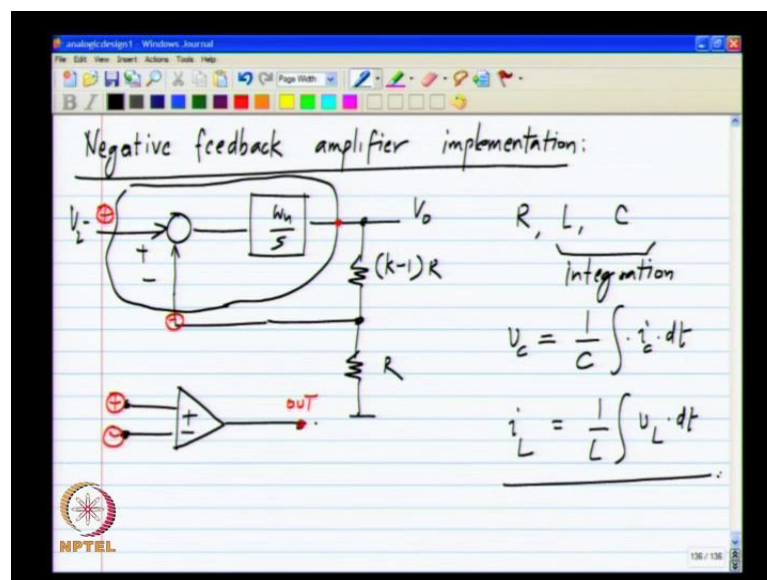 analogicdesign1 - Windows Journal
File Edit View Insert Actions Tools Help
Page Width
B I
Negative feedback amplifier implementation:
Vi + + - ωu/s Vo
(k-1)R
-
R
+ - + - OUT
R, L, C
integration
v_c = 1/C ∫ i_c · dt
i_L = 1/L ∫ v_L · dt
NPTEL
136 / 136